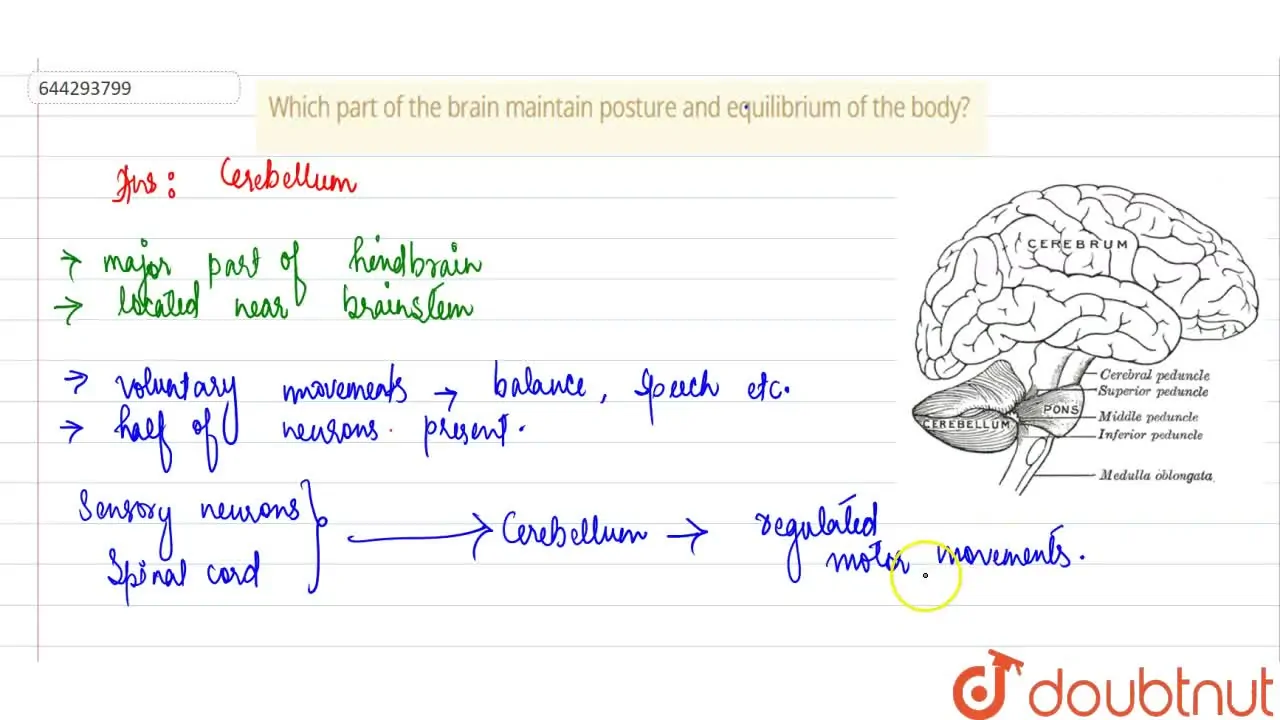 644293799
Which part of the brain maintain posture and equilibrium of the body?
Ans: Cerebellum
→ major part of hindbrain
→ located near brainstem
→ voluntary movements → balance, speech etc.
→ half of neurons present.
Sensory neurons
Spinal cord
→ Cerebellum → regulated
motor movements.
CEREBRUM
Cerebral peduncle
Superior peduncle
PONS
Middle peduncle
CEREBELLUM
Inferior peduncle
Medulla oblongata
doubtnut